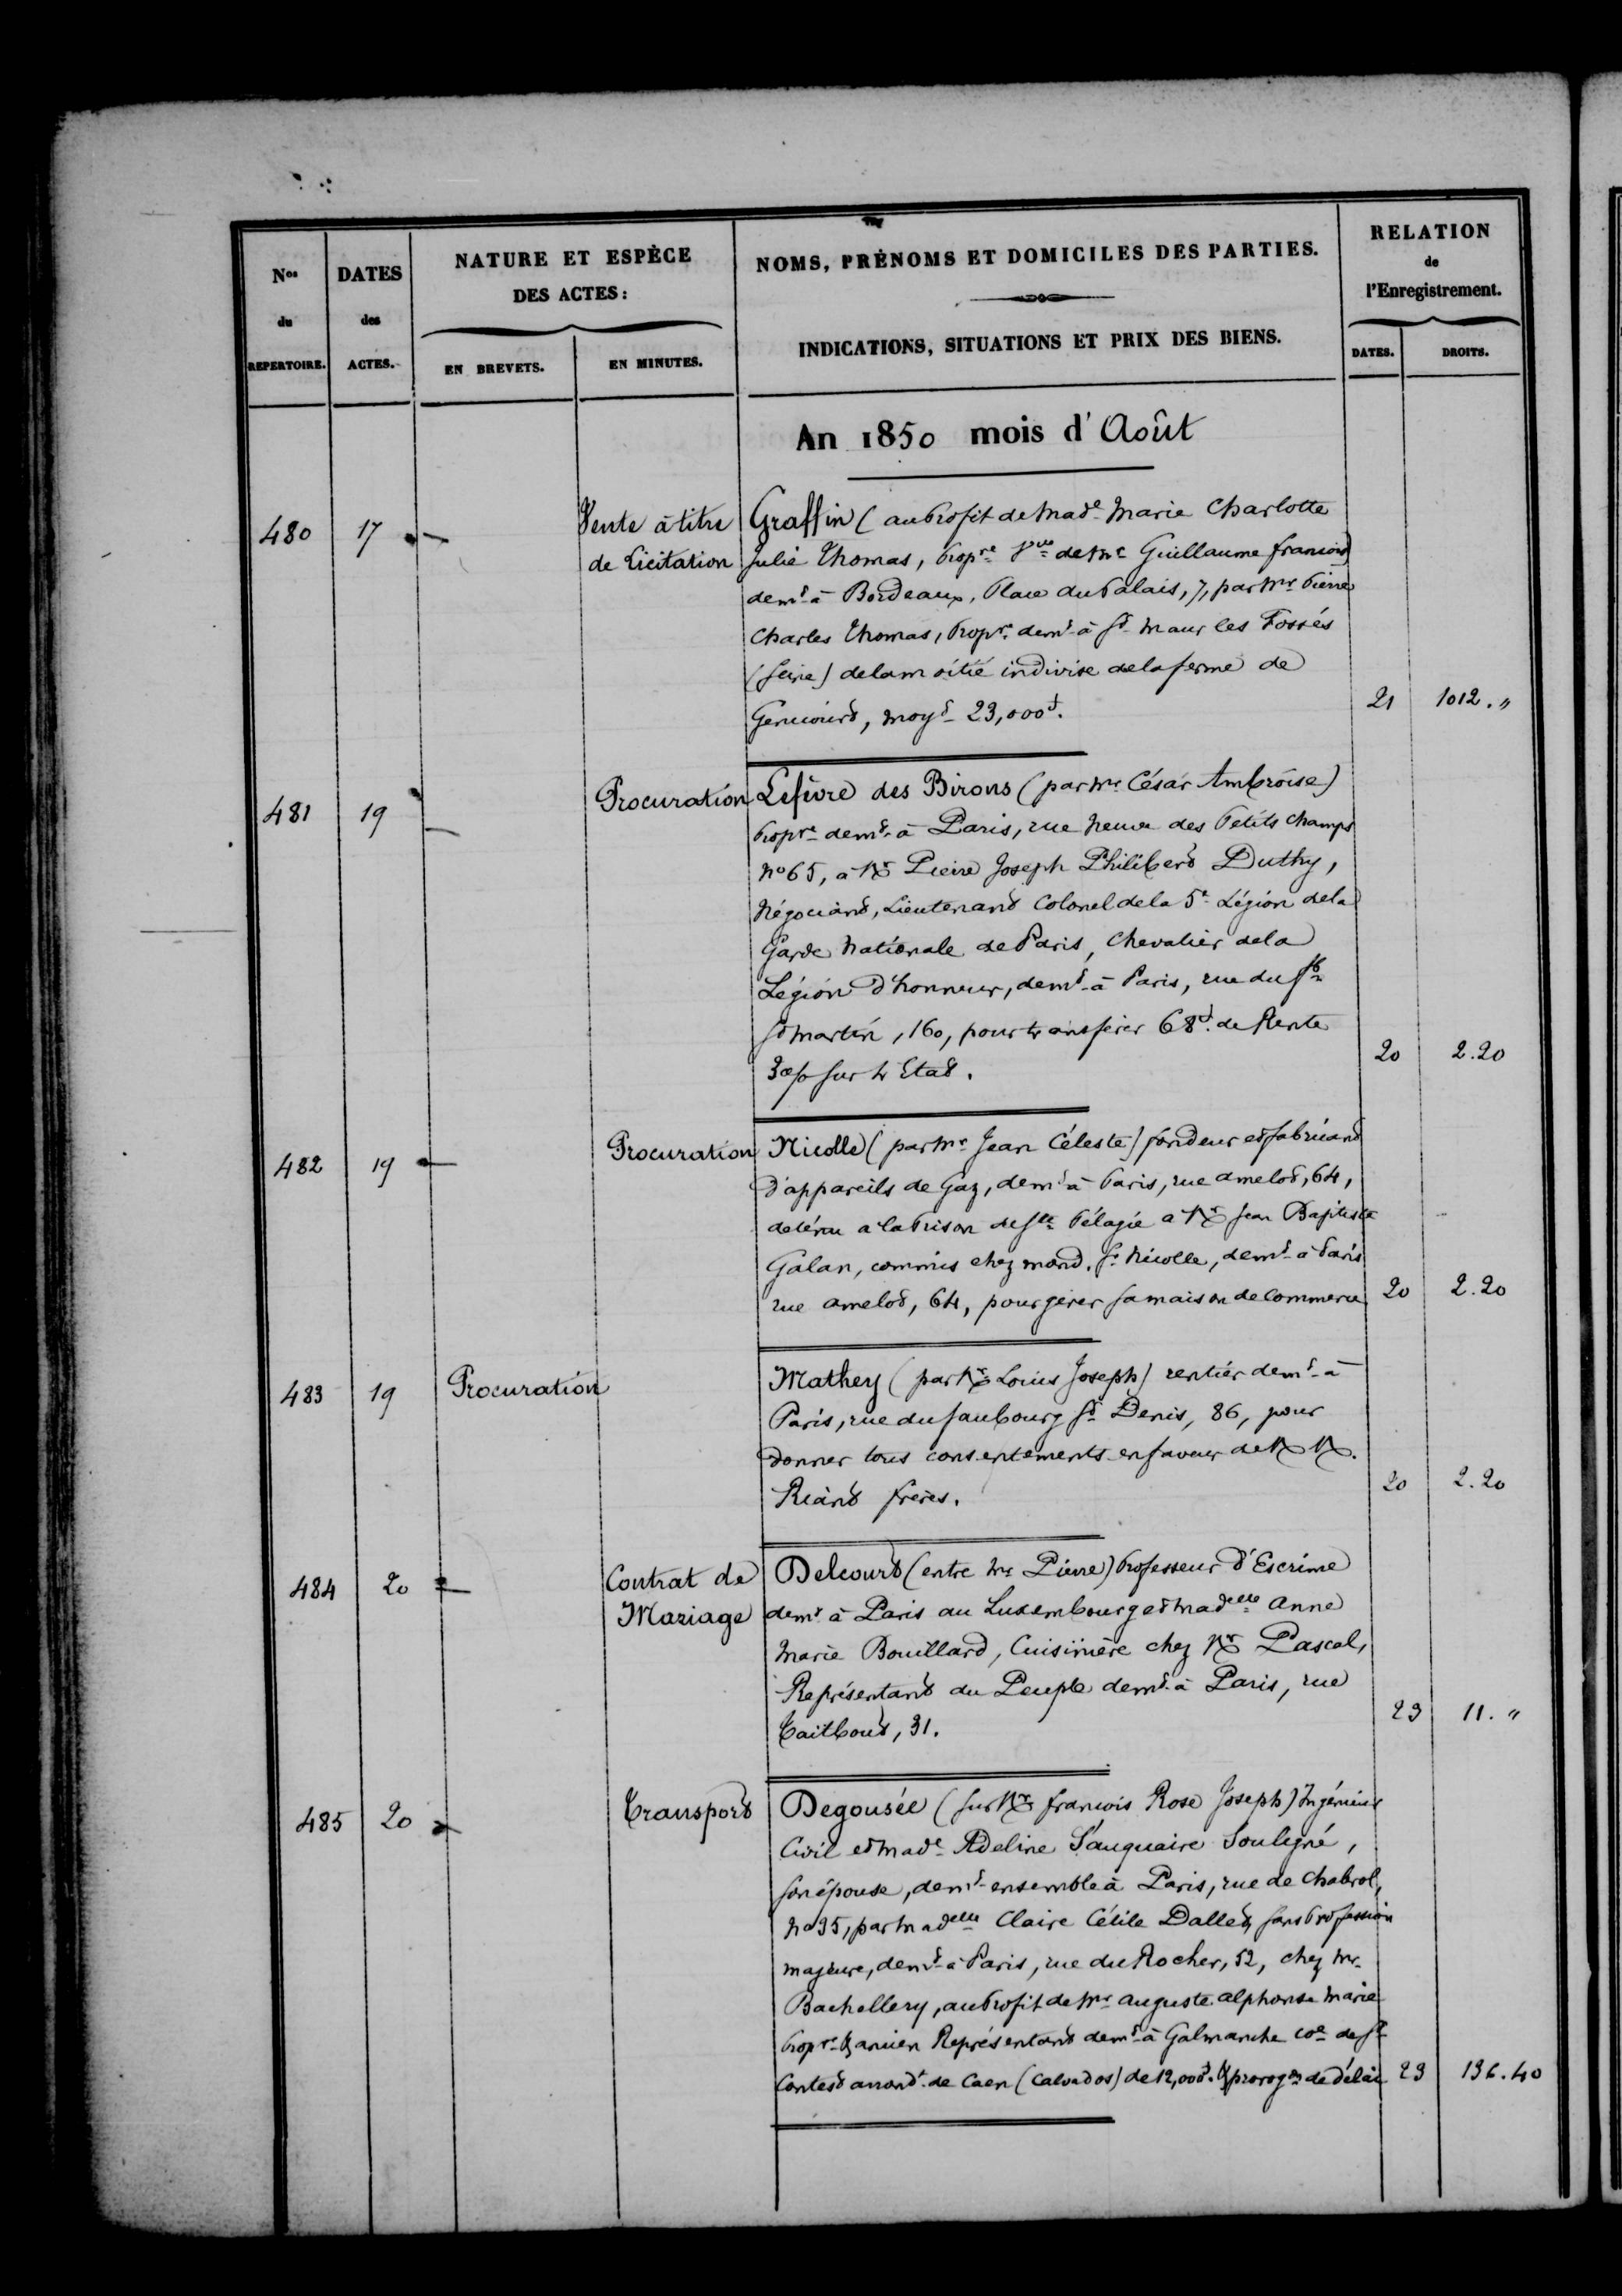 Nos
du
REPERTOIRE.
DATES
des
ACTES.
NATURE ET ESPÈCE
DES ACTES:
EN BREVETS.
EN MINUTES.
NOMS, PRÉNOMS ET DOMICILES DES PARTIES.
INDICATIONS, SITUATIONS ET PRIX DES BIENS.
RELATION
de
l'Enregistrement.
DATES.
DROITS.
An 1850 mois d'Août
480 17 — Vente à titre
de Licitation
Graffin (au profit de Made Marie Charlotte
Julie Thomas, propre Vve de Mr Guillaume francois)
demt à Bordeaux, Place du Palais, 7, par Mr Pierre
Charles Thomas, propre demt à St Maur les Fossés
(Seine) de la moitié indivise de la ferme de
moyt 23,000f. 21 1012."
481 19 — Procuration
Lefèvre des Birons (par Mr César Ambroise)
propre demt à Paris, rue Neuve des Petits Champs
No 65, à Mr Pierre Joseph Philibert Duthy,
Négociant, Lieutenant Colonel de la 5e Légion de la
Garde Nationale de Paris, Chevalier de la
Légion d'honneur, demt à Paris, rue du fg
St Martin, 160, pour transférer 68f. de Rente
3 o/o sur l'Etat. 20 2.20
482 19 — Procuration
Nicolle (par Mr Jean Céleste) fondeur et fabricant
d'appareils de Gaz, demt à Paris, rue amelot, 64,
détenu à la Prison de Ste Pélagie à Mr Jean Baptiste
Galan, commis chez mond. Sr Nicolle, demt à Paris
rue amelot, 64, pour gérer sa maison de Commerce 20 2.20
483 19 Procuration
Mathey (par Mr Louis Joseph) rentier demt à
Paris, rue du faubourg St Denis, 86, pour
donner tous consentements en faveur de MM.
Riant frères. 20 2.20
484 20 — Contrat de
Mariage
Delcourt (entre Mr Pierre) Professeur d'Escrime
demt à Paris au Luxembourg et Madelle Anne
Marie Bouillard, Cuisinière chez Mr Pascal,
Représentant du Peuple demt à Paris, rue
Taitbout, 31. 23 11."
485 20 — Transport
Degousée (sur Mr francois Rose Joseph) Ingénieur
Civil et Made Adeline Sauquaire Souligné,
son épouse, demt ensemble à Paris, rue de Chabrol,
No 35, par Madelle Claire Cécile Sans profession
majeure, demt à Paris, rue du Rocher, 52, chez Mr
Bachellery, au profit de Mr auguste alphonse Marie
propre & ancien Représentant demt à Galmanche coe de St
Contest arrondt de Caen (Calvados) de 12,000f. & prorogon de délai 23 136.40